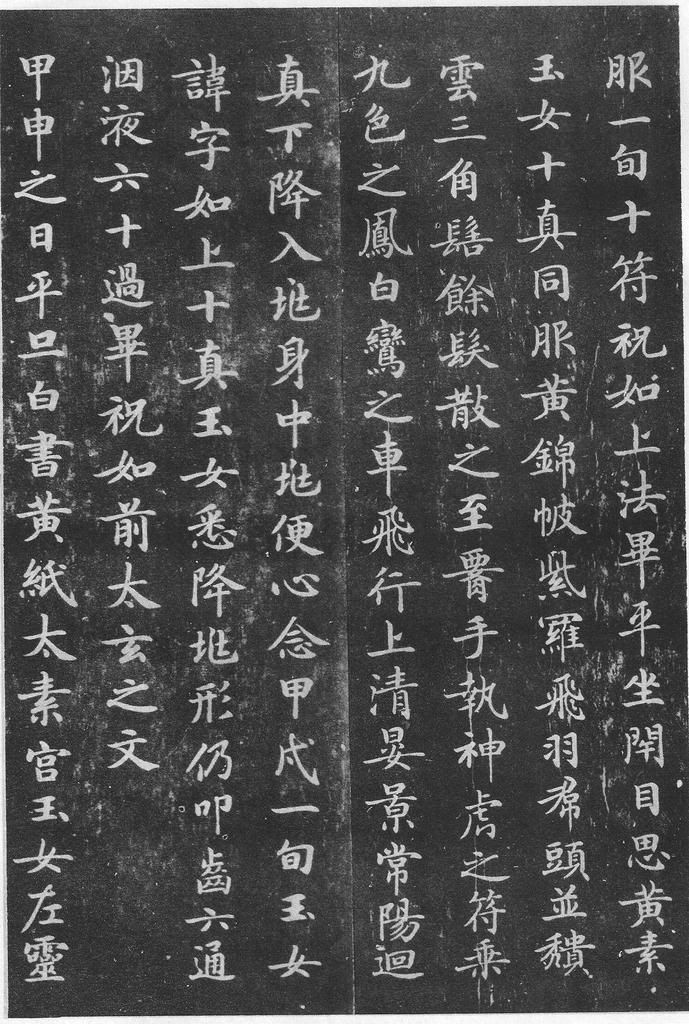 服一旬十符祝如上法畢平坐閇目思黃素
玉女十真同服黃錦帔紫羅飛羽帬頭並穨
雲三角髻餘髮散之至腰手執神虎之符乗
九色之鳳白鸞之車飛行上清晏景常陽迴
真下降入兆身中兆便心念甲戌一旬玉女
諱字如上十真玉女悉降兆形仍叩齒六通
洇液六十過畢祝如前太玄之文
甲申之日平旦白書黃紙太素宮玉女左靈